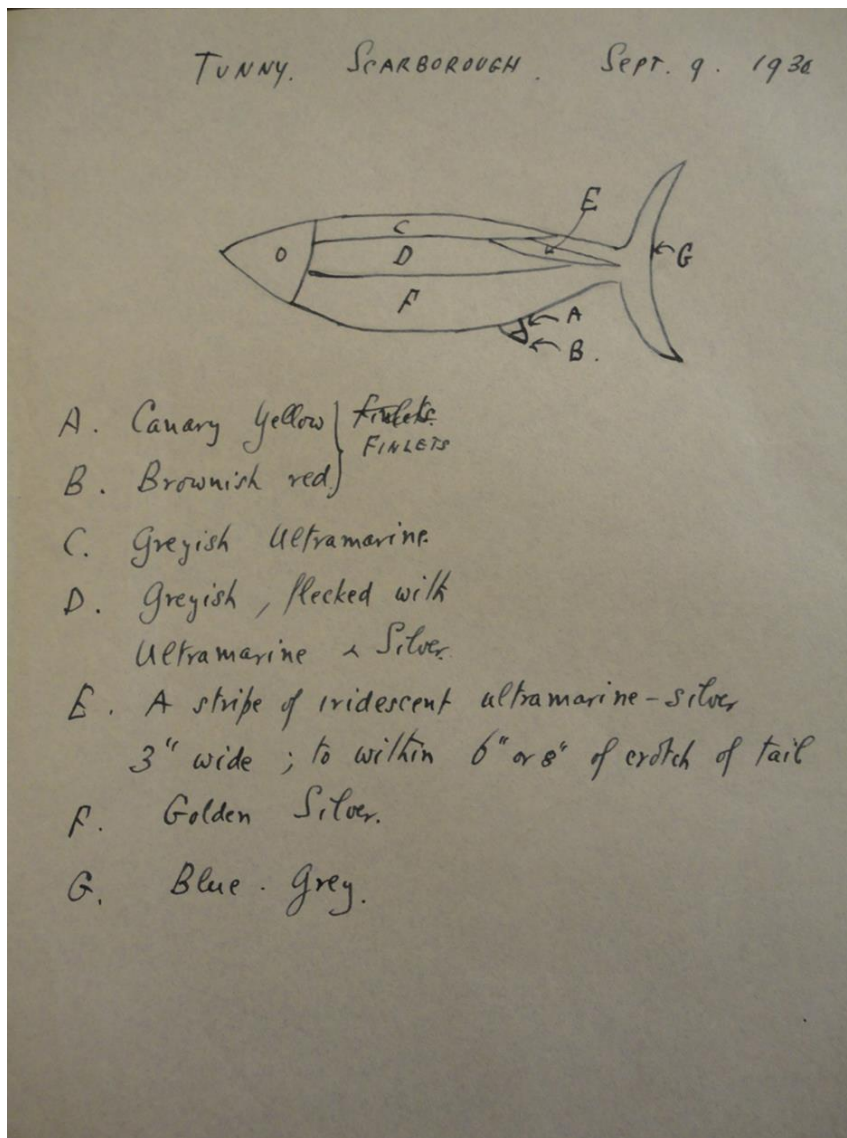 TUNNY. SCARBOROUGH. SEPT. 9. 1930
E
C
O D G
F
A
B.
A. Canary Yellow } Finlets.
FINLETS
B. Brownish red.
C. Greyish Ultramarine.
D. Greyish, flecked with
Ultramarine & Silver.
E. A stripe of iridescent ultramarine-silver
3" wide; to within 6" or 8" of crotch of tail
F. Golden Silver.
G. Blue. Grey.